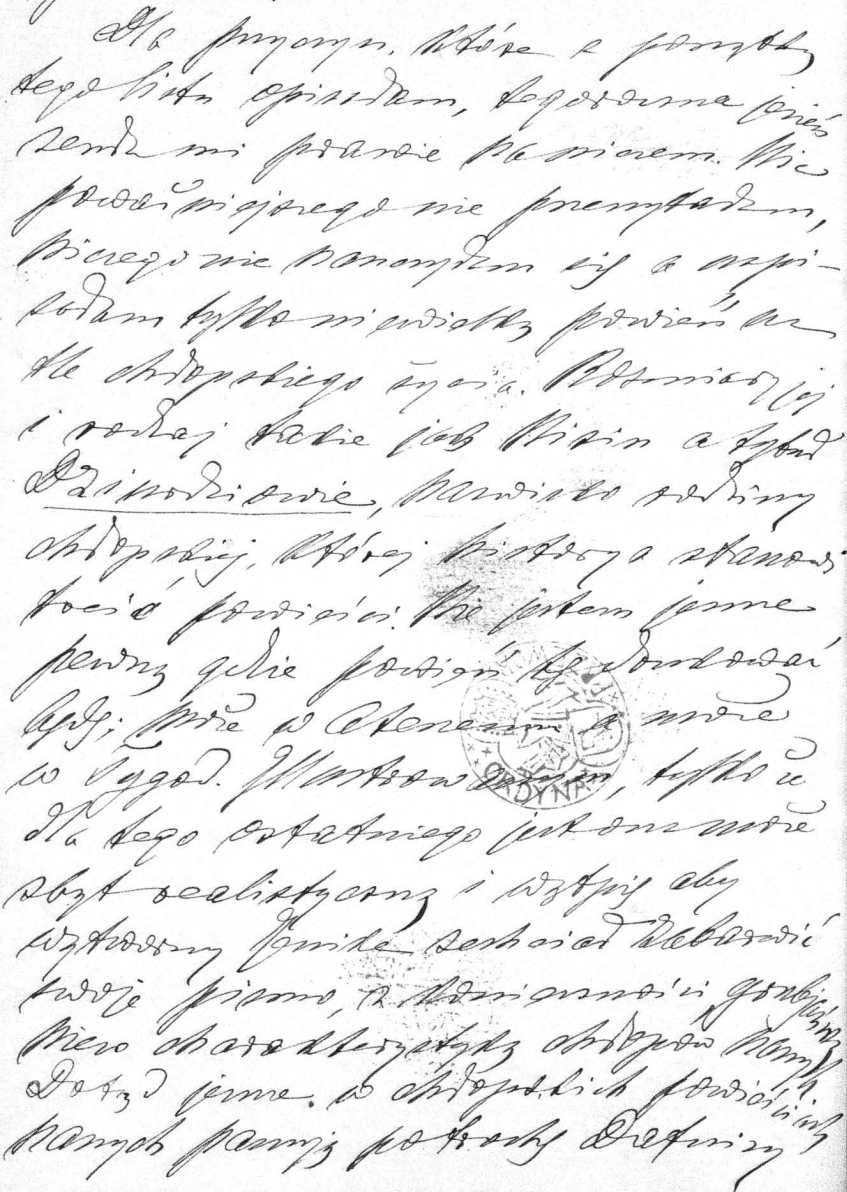 Dla przyczyn, które z początku
tego listu opisałam, tegoroczna jesień
zeszła mi prawie na niczem. Nic
poważniejszego nie przeczytałam,
niczego nie nauczyłam się a napi-
sałam tylko niewielką powieść na
tle chłopskiego życia. Rozmiary jej
i rodzaj takie jak Nizin a tytuł
Dziurdziowie, nazwisko rodziny
chłopskiej, której historya stanowi
treść powieści. Nie jestem jeszcze
pewną gdzie powieść tę drukować
będę; może w Ateneum a może
w Tygod. Illustrowanym, tylko że
dla tego ostatniego jest ona może
zbyt realistyczną i wątpię aby
wytworny Jenike zechciał zabarwić
swoje pismo, z konieczności grubijańską
nieco charakterystyką chłopów naszych.
Dotąd jeszcze w chłopskich powieściach
naszych panują potrochę Dafnisy